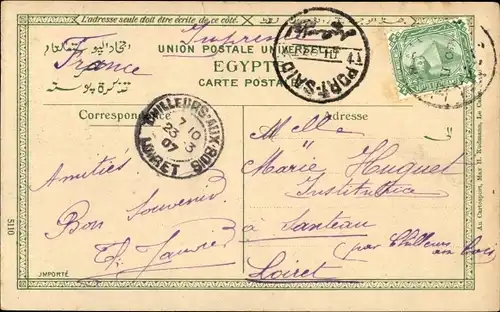 L'adresse seule doit être écrite de ce côté.
UNION POSTALE UNIVERSELLE
اتحاد البوستة العام
France
EGYPTE
تذكرة بوستة
CARTE POSTALE
PORT-SAID
Correspondance
Adresse
CHILLEURS-AUX-BOIS
7 10
23 3
07
LOIRET
Melle
Marie Huguet
Institutrice
à Santeau
(par Chilleurs
aux bois)
Loiret
Amitiés
Bon Souvenir
5110
IMPORTÉ
Au Cartosport, Max H. Rudmann, Le Caire